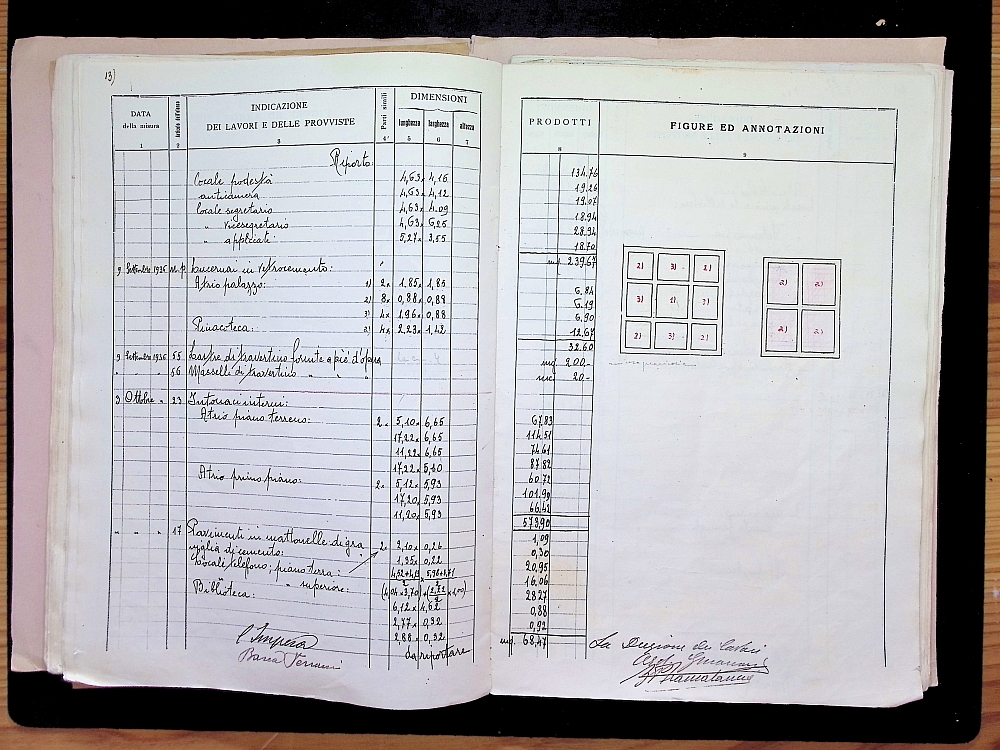 13)
DATA
della misura
INDICAZIONE
DEI LAVORI E DELLE PROVVISTE
Parti simili
DIMENSIONI
lunghezza larghezza altezza
1 2 3 4 5 6 7
Riporto:
Locale podestà 4,63 x 4,16
anticamera 4,63 x 4,12
Locale segretario 4,63 x 4.09
" vicesegretario 4,63 x 6,25
" applicati 5,27 x 3,55
9 Settembre 1936 Lucernai in vetrocemento:
Atrio palazzo: 1) 2 x 1,85 x 1,85
2) 8 x 0,88 x 0,88
3) 4 x 1.96 x 0,88
Pinacoteca: 2) 4 x 2.23 x 1,42
9 Settembre 1936 55 Lastre di travertino fornite a piè d'opera
" " " 56 Masselli di travertino " " "
3 Ottobre " 23 Intonaci interni:
Atrio piano terreno: 2 x 5,10 x 6,65
17,22 x 6,65
11,22 x 6,65
17,22 x 5,10
Atrio primo piano: 2 x 5,12 x 5,93
17,20 x 5,93
11,20 x 5,93
" " " 17 Pavimenti in mattonelle di gra
niglia di cemento: 2 x 2,10 x 0,26
1,35 x 0,22
Locale telefono; piano terra:
" " superiore:
Biblioteca:
6,12 x 4,62
2,77 x 0,32
2,88 x 0,32
da riportare
L'Impresa
PRODOTTI
8
FIGURE ED ANNOTAZIONI
9
134.76
19.26
19.07
18.94
28.94
18.70
mq. 239.67
6.84
6.19
6.90
12.67
32.60
mq. 200.-
mc. 20-
67,83
114.51
74.61
87.82
60.72
101.99
66.42
573,90
1,09
0,30
20,95
16.06
28.27
0,88
0,92
mq. 68,47
2) 3) 2)
3) 1) 3)
2) 3) 2)
2) 2)
2) 2)
La Direzione dei lavori